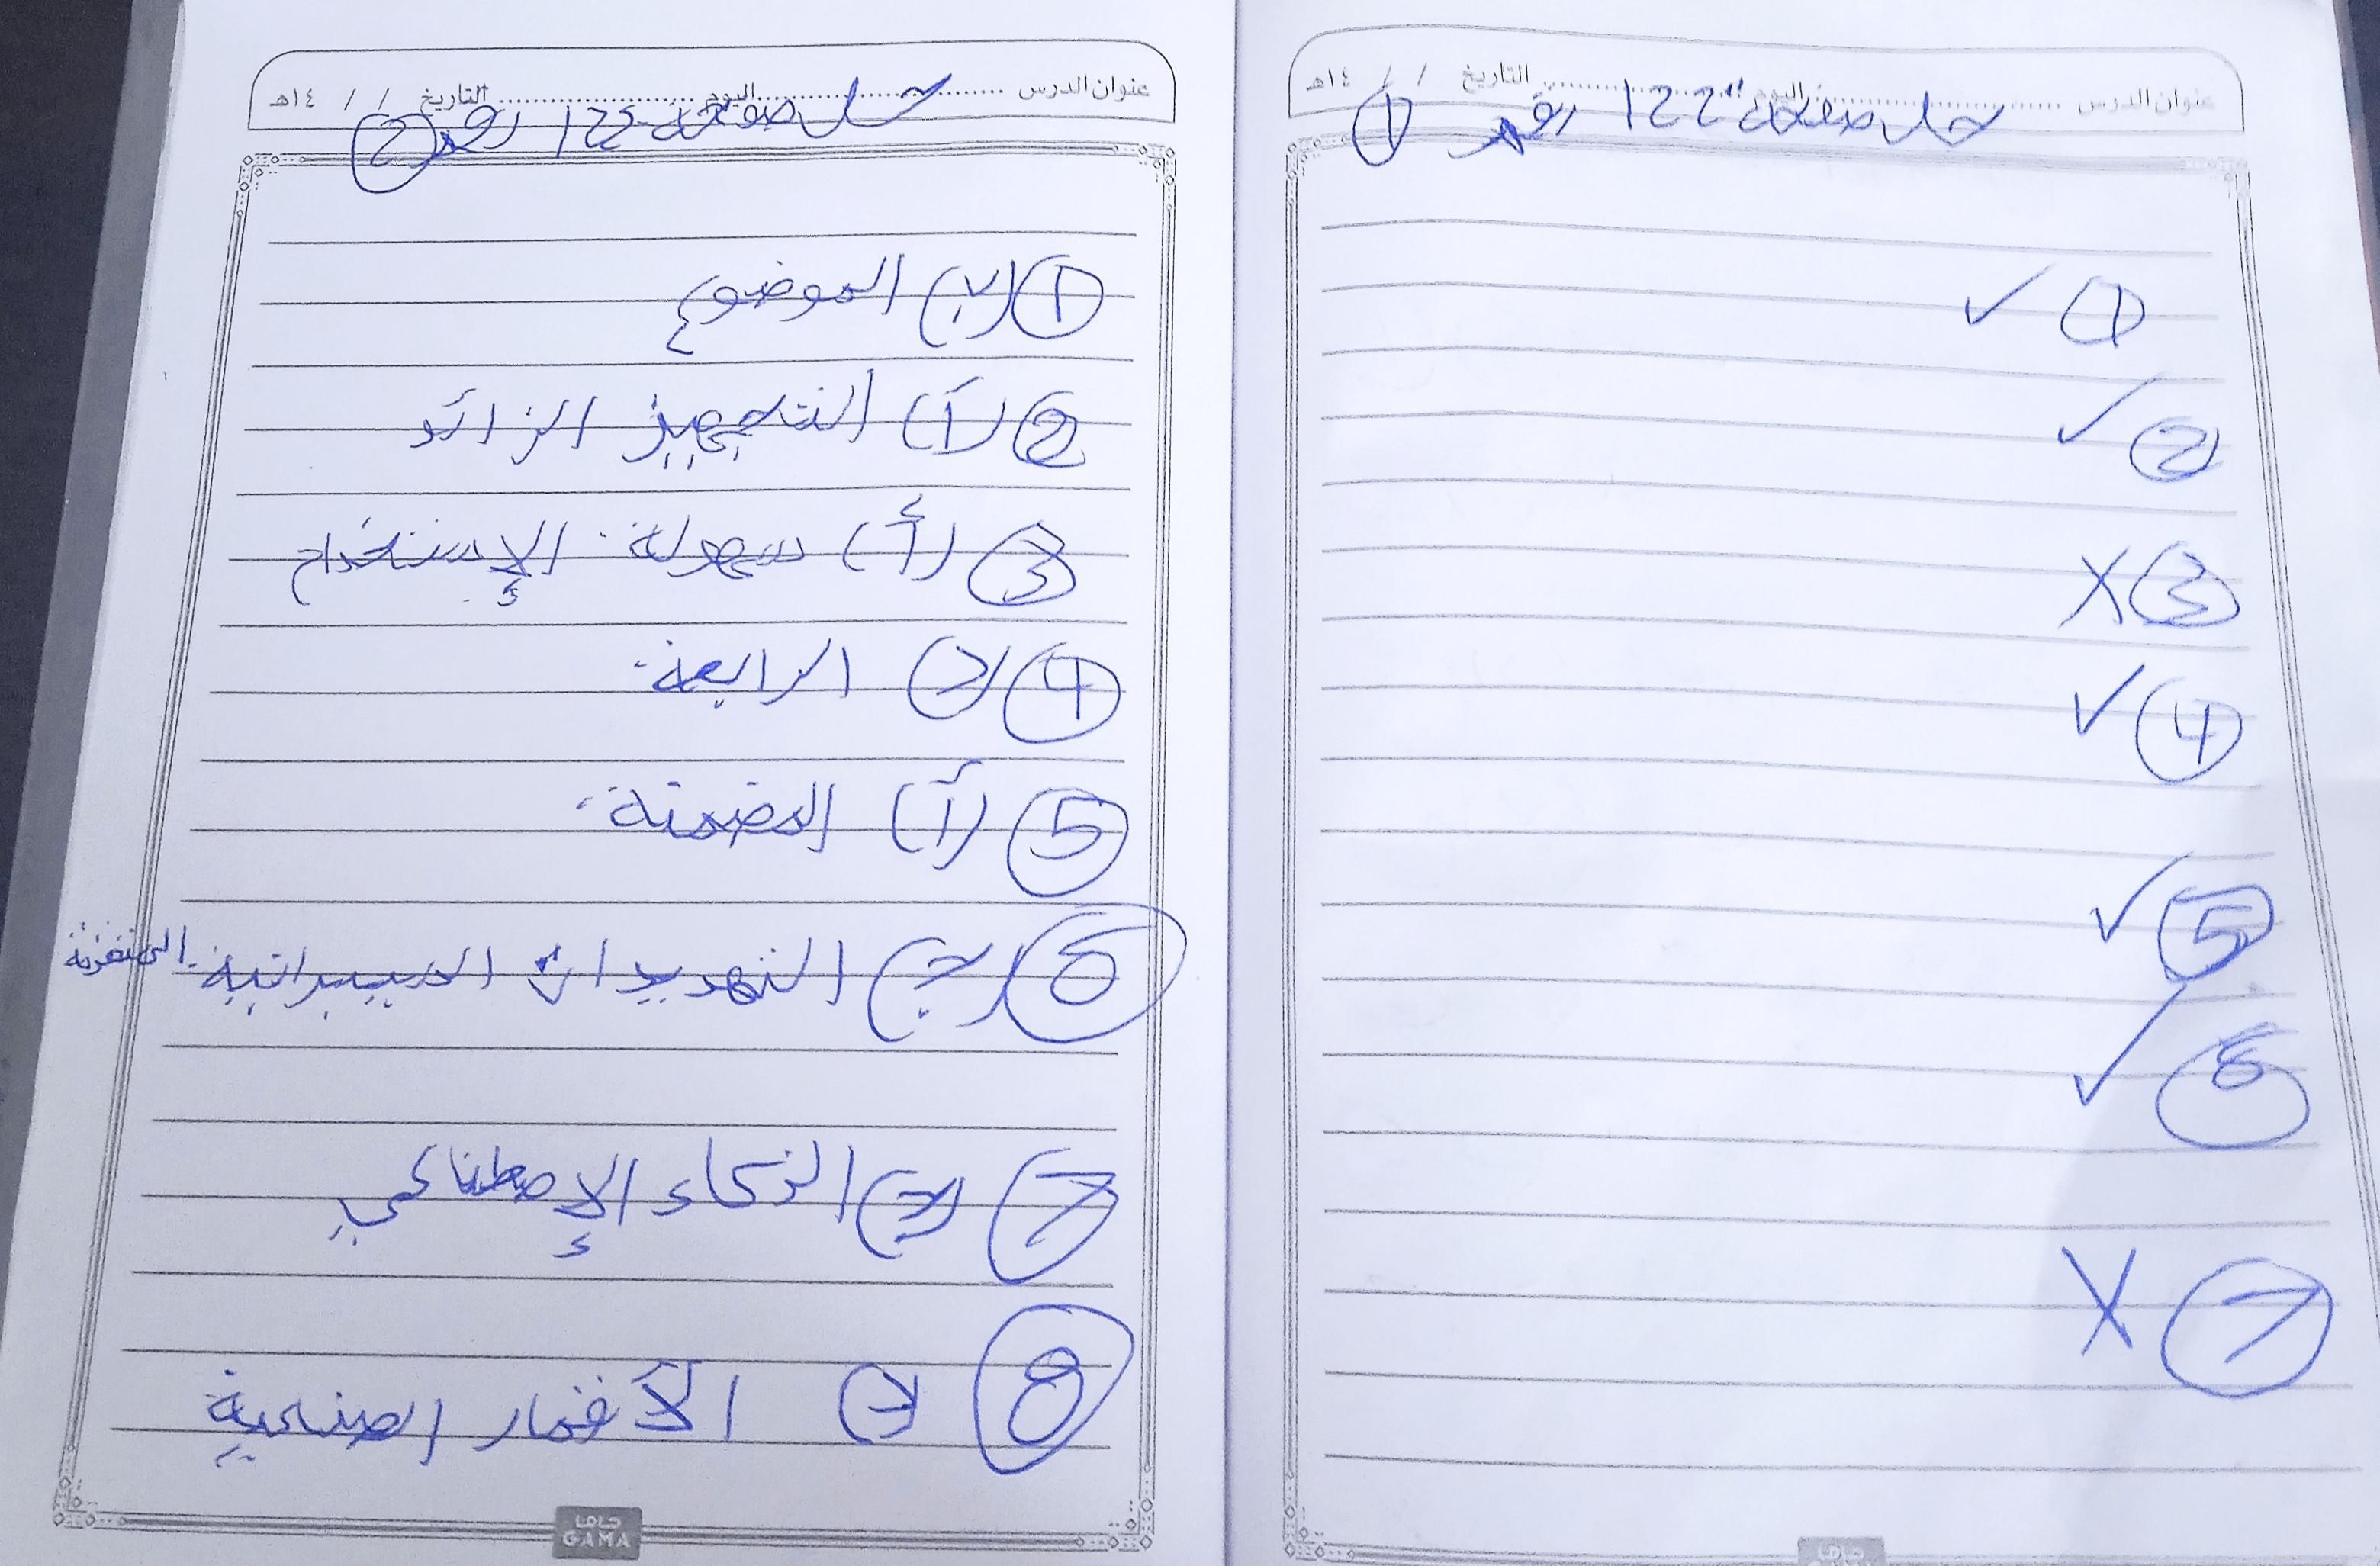 عنوان الدرس اليوم التاريخ / / ١٤هـ
حل صفحة 122 رقم 1
1 ✓
2 ✓
3 X
4 ✓
5 ✓
6 ✓
7 X
جاما
عنوان الدرس اليوم التاريخ / / ١٤هـ
حل صفحة 122 رقم 2
1 (ب) الموضوع
2 (أ) التجهيز الزائد
3 (أ) سهولة الإستخدام
4 (د) الرابعة
5 (أ) المضمنة
6 (ج) التهديدات السيبرانية
7 (ج) الذكاء الإصطناعي
8 (ج) الأقمار الصناعية
جاما
GAMA